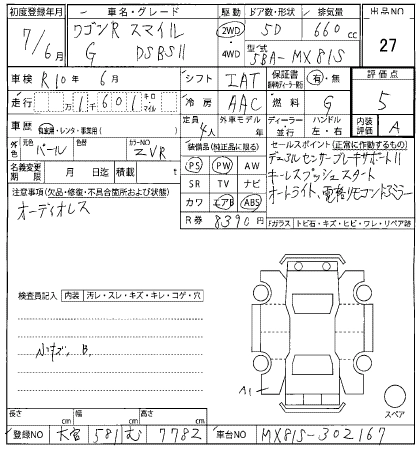 初度登録年月 車名・グレード 駆動 ドア数・形状 排気量 出品NO
7/6月 ワゴンR スマイル 2WD 5D 660cc 27
G DSBSⅡ 4WD 型式 5BA-MX81S
車検 R10年 6月 シフト IAT 保証書 有・無 評価点
走行 万 1千 601 キロ マイル 冷房 AAC 燃料 G 5
車歴 自家用・レンタ・事業用( ) 定員 4人 外車モデル 年 ディーラー 並行 ハンドル 左・右 内装評価 A
色 元色 パール 色替 カラーNO ZVR 装備品(純正品に限る) セールスポイント(正常に作動するもの)
名義変更期限 月 日迄 積載 t PS PW AW デュアルセンサーブレーキサポートⅡ
注意事項(欠品・修復・不具合箇所および状態) SR TV ナビ キーレスプッシュスタート
オーディオレス カワ エアB ABS オートライト、電格リモコンドミラー
R券 8390円 Fガラス トビ石・キズ・ヒビ・ワレ・リペア跡
検査員記入 内装 汚レ・スレ・キズ・キレ・コゲ・穴
小キズ、B、
A1
スペア
長さ cm 幅 cm 高さ cm
登録NO 大宮 581 む 7782 車台NO MX81S-302167